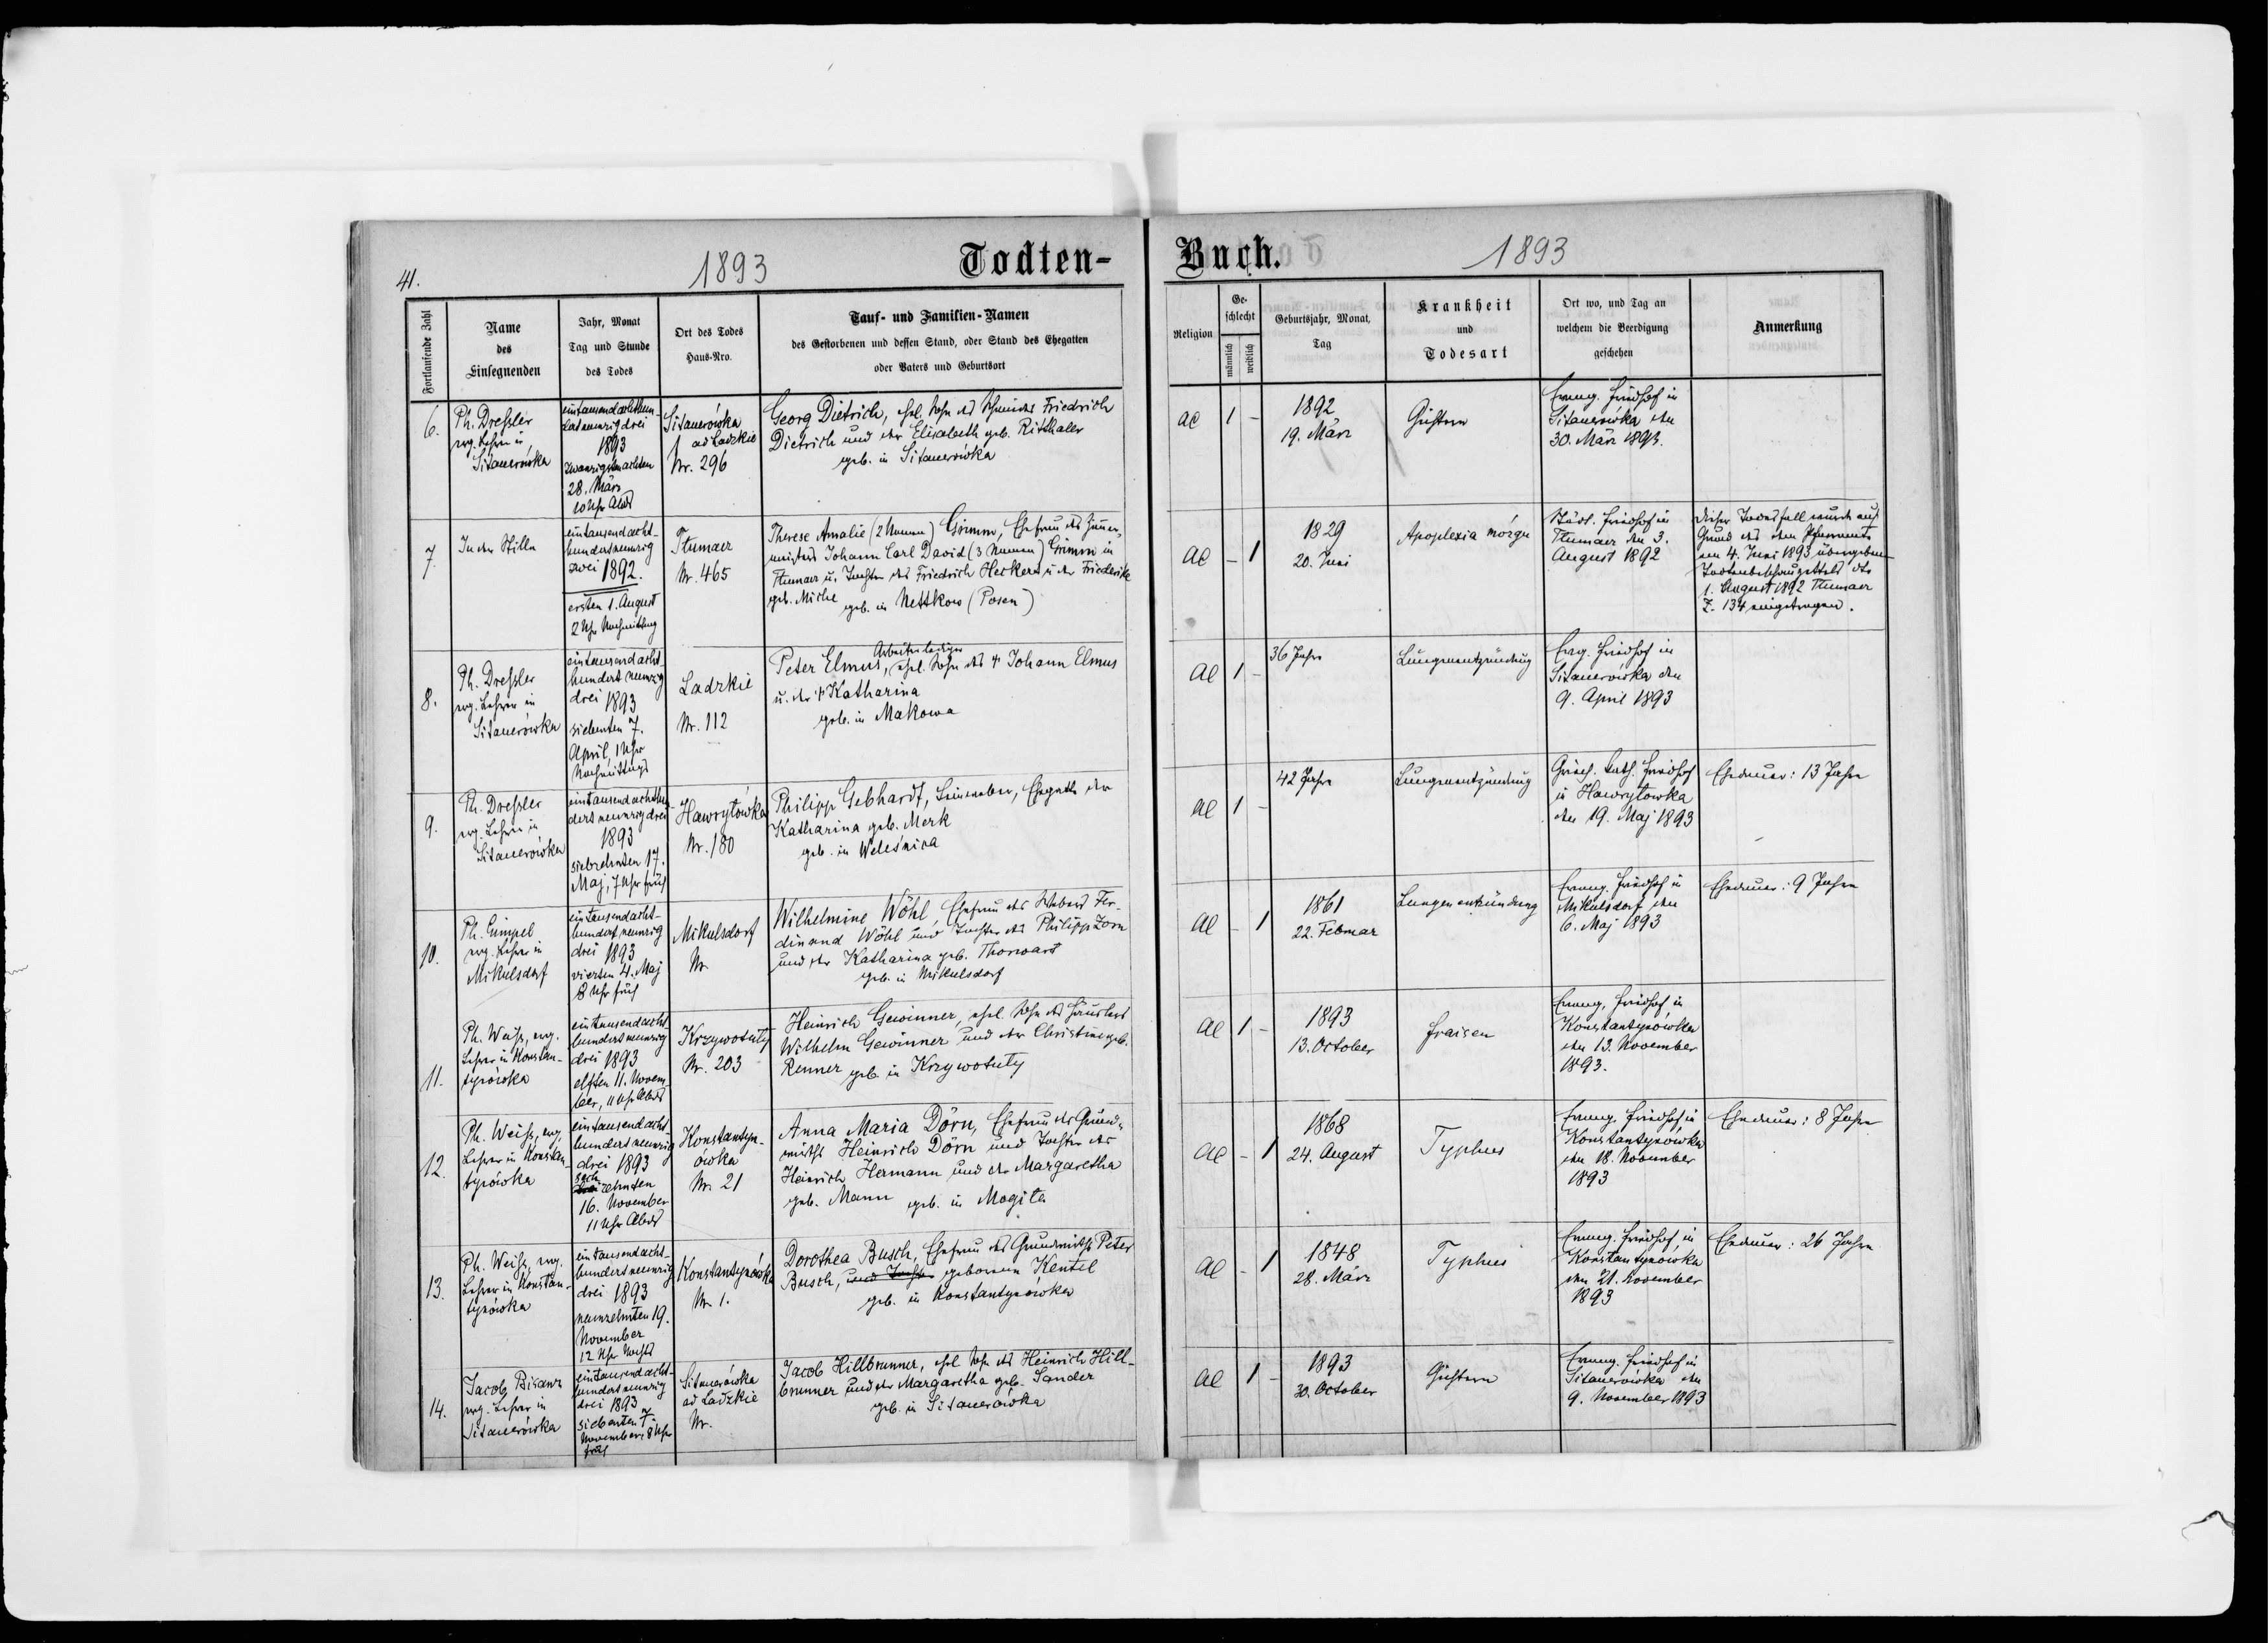 41.
1893
Todten-
Buch.
1893
Fortlaufende Zahl
Name
des
Einsegnenden
Jahr, Monat
Tag und Stunde
des Todes
Ort des Todes
Haus-Nro.
Tauf- und Familien-Namen
des Gestorbenen und dessen Stand, oder Stand des Ehegatten
oder Vaters und Geburtsort
Religion
Ge-
schlecht
männlich
weiblich
Geburtsjahr, Monat,
Tag
Krankheit
und
Todesart
Ort wo, und Tag an
welchem die Beerdigung
geschehen
Anmerkung
6.
Ph. Dreßler
evg. Lehrer in
Sitauerówka
eintausendachthun-
1893
28. März
10 Uhr Abds
Sitauerówka
ad Ladzkie
Nr. 296
Georg Dietrich, ehel. Sohn des Friedrich
Dietrich und der Elisabeth geb. Ritthaler
geb. in Sitauerówka
ac
1
-
1892
19. März
Evang. Friedhof in
Sitauerówka den
30. März 1893.
7.
In der Stille
eintausendacht-
hundertneunzig
zwei 1892.
ersten 1. August
2 Uhr Nachmittag
Tłumacz
Nr. 465
Therese Amalie (2 Namen) Grimm, Ehefrau des Zimmer-
meisters Johann Carl David (3 Namen) Grimm in
Tłumacz u. Tochter des Friedrich Heckert u. der Friederike
geb. Miche geb. in Nettkow (Posen)
ac
-
1
1829
20. Juni
Apoplexia mózgu
Städt. Friedhof in
Tłumacz den 3.
August 1892
Dieser Todesfall wurde auf
Grund des dem Pfarramte
am 4. Juni 1893 übergebenen
Todtenbeschauzettels dto
1. August 1892 Tłumacz
Z. 134 eingetragen.
8.
Ph. Dreßler
evg. Lehrer in
Sitauerówka
eintausendacht-
hundert neunzig
drei 1893
siebenten 7.
April, 1 Uhr
Nachmittags
Ladzkie
Nr. 112
Arbeiter lediger
Peter Elmus, ehel. Sohn des † Johann Elmus
u. der † Katharina
geb. in Makowa
al
1
-
36 Jahre
Lungenentzündung
Evg. Friedhof in
Sitauerówka den
9. April 1893
9.
Ph. Dreßler
evg. Lehrer in
Sitauerówka
eintausendachthun-
dertneunzigdrei
1893
siebzehnten 17.
Maj, 7 Uhr früh
Hawryłówka
Nr. 180
Philipp Gebhardt, Leinweber, Ehegatte der
Katharina geb. Merk
geb. in Weleśnica
al
1
-
42 Jahre
Lungenentzündung
Griech. kath. Friedhof
in Hawryłowka
den 19. Maj 1893
Ehedauer: 13 Jahre
10.
Ph. Gimpel
evg. Lehrer in
Mikulsdorf
eintausendacht-
hundertneunzig
drei 1893
vierten 4. Maj
8 Uhr früh
Mikulsdorf
Nr.
Wilhelmine Wöhl, Ehefrau des Webers Fer-
dinand Wöhl und Tochter des Philipp Zorn
und der Katharina geb. Thorwart
geb. in Mikulsdorf
al
-
1
1861
22. Februar
Lungenentzündung
Evang. Friedhof in
Mikulsdorf den
6. Maj 1893
Ehedauer: 9 Jahre
11.
Ph. Weiß, evg.
Lehrer in Konstan-
tynówka
eintausendacht-
hundertneunzig
drei 1893
elften 11. Novem-
ber, 11 Uhr Abds
Krzywotuły
Nr. 203
Heinrich Gewinner, ehel. Sohn des Häuslers
Wilhelm Gewinner und der Christine geb.
Renner geb. in Krzywotuły
al
1
-
1893
13. October
Fraisen
Evang. Friedhof in
Konstantynówka
den 13. November
1893.
12.
Ph. Weiß, evg.
Lehrer in Konstan-
tynówka
eintausendacht-
hundertneunzig
drei 1893
sech
zehnten
16. November
11 Uhr Abds
Konstantyn-
ówka
Nr. 21
Anna Maria Dörn, Ehefrau des Grund-
wirths Heinrich Dörn und Tochter des
Heinrich Hermann und der Margaretha
geb. Mann geb. in Mogiła
al
-
1
1868
24. August
Typhus
Evang. Friedhof in
Konstantynówka
den 18. November
1893
Ehedauer: 8 Jahre
13.
Ph. Weiß, evg.
Lehrer in Konstan-
tynówka
eintausendacht-
hundertneunzig
drei 1893
neunzehnten 19.
November
12 Uhr Nachts
Konstantynówka
Nr. 1.
Dorothea Busch, Ehefrau des Grundwirths Peter
Busch, und Tochter geborene Kentel
geb. in Konstantynówka
al
-
1
1848
28. März
Typhus
Evang. Friedhof in
Konstantynówka
den 21. November
1893
Ehedauer: 26 Jahre
14.
Jacob Bisanz
evg. Lehrer in
Sitauerówka
eintausendacht-
hundertneunzig
drei 1893
siebenten 7.
November, 8 Uhr
früh
Sitauerówka
ad Ladzkie
Nr.
Jacob Hillbrunner, ehel. Sohn des Heinrich Hill-
brunner und der Margaretha geb. Sander
geb. in Sitauerówka
al
1
-
1893
30. October
Evang. Friedhof in
Sitauerówka den
9. November 1893